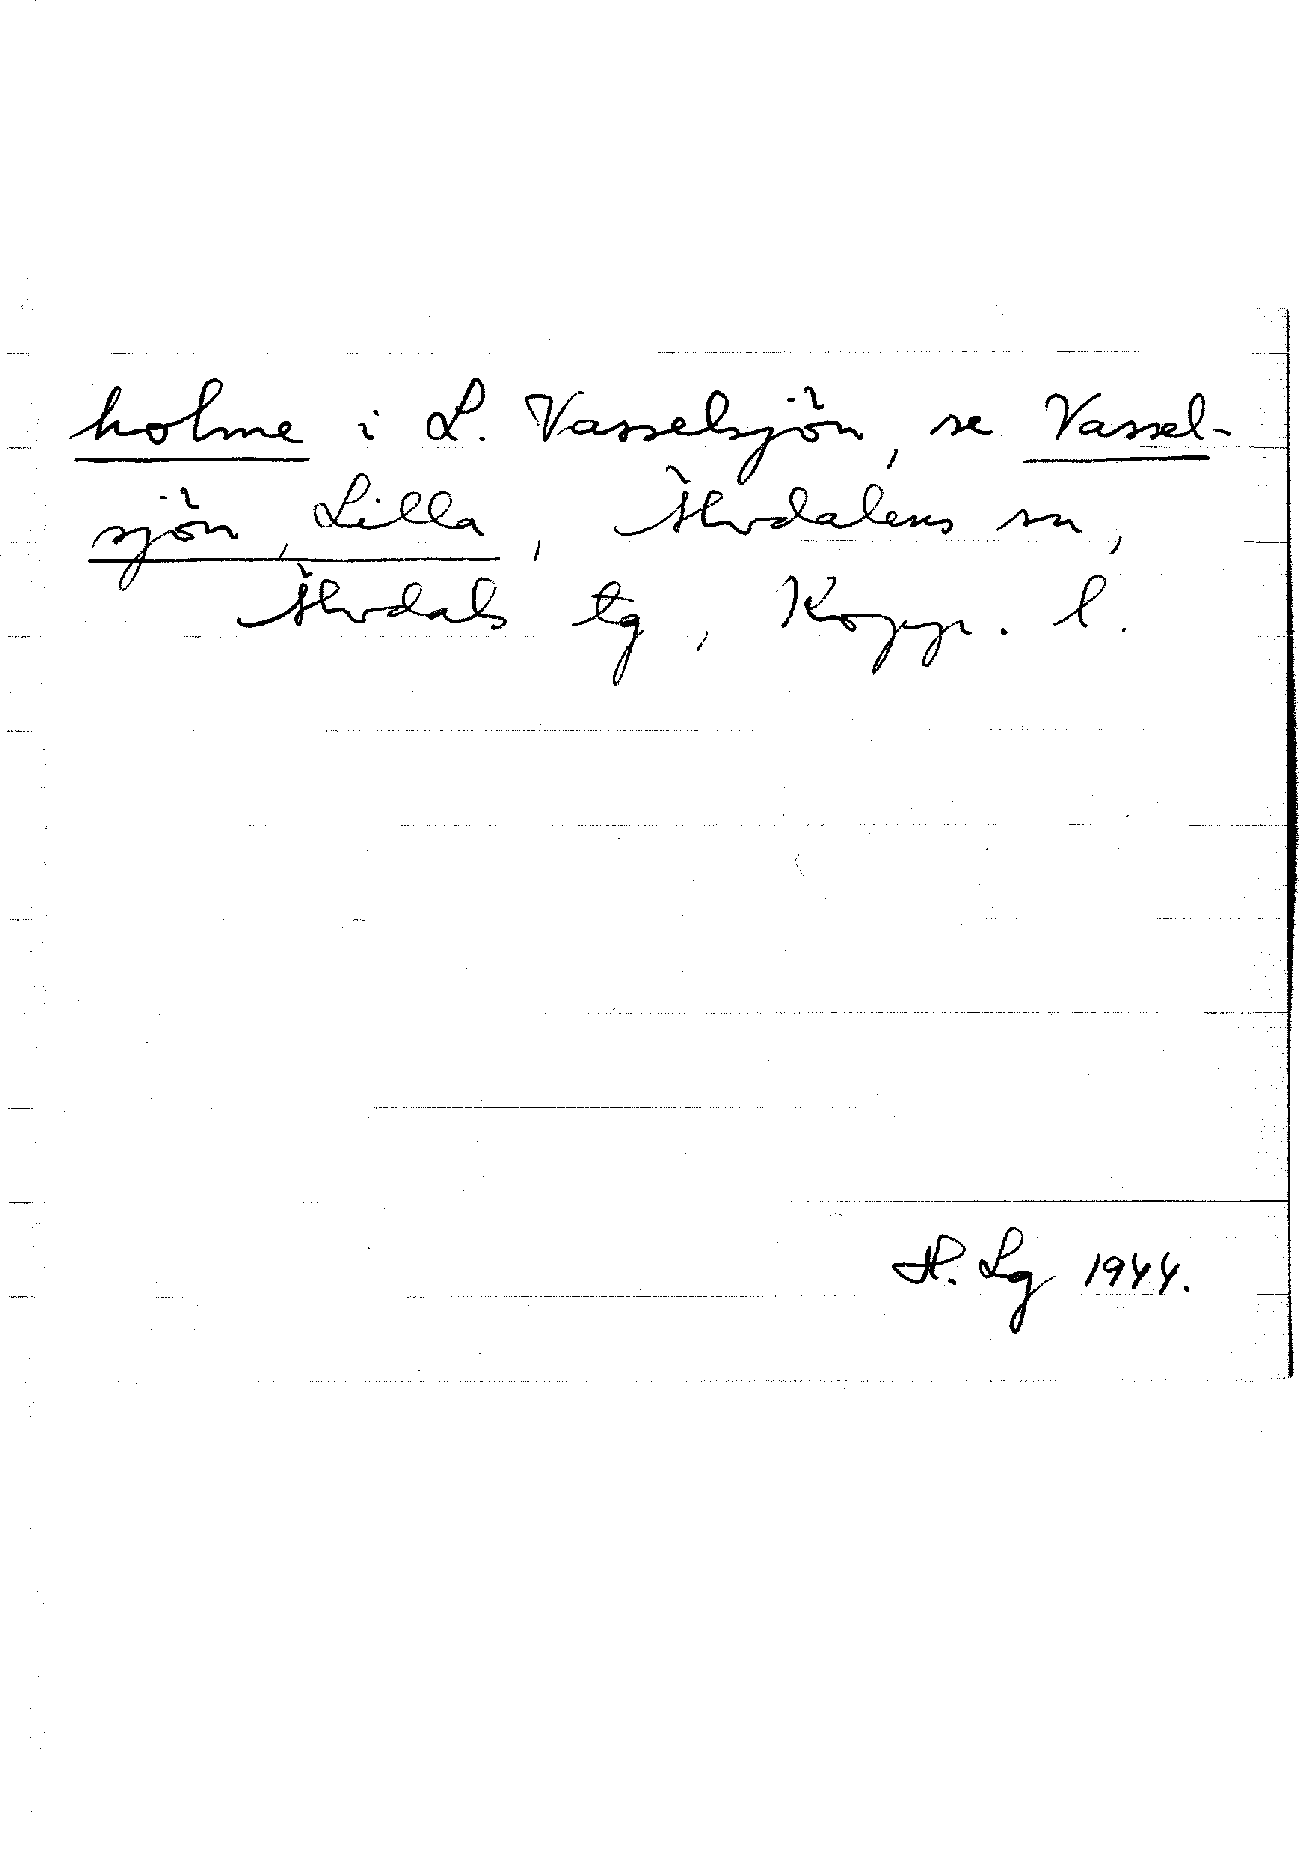 holme i L. Vasselsjön, se Vassel-
sjön, Lilla, Älvdalens sn,
Älvdals tg, Kopp. l.
H. Lg 1944.